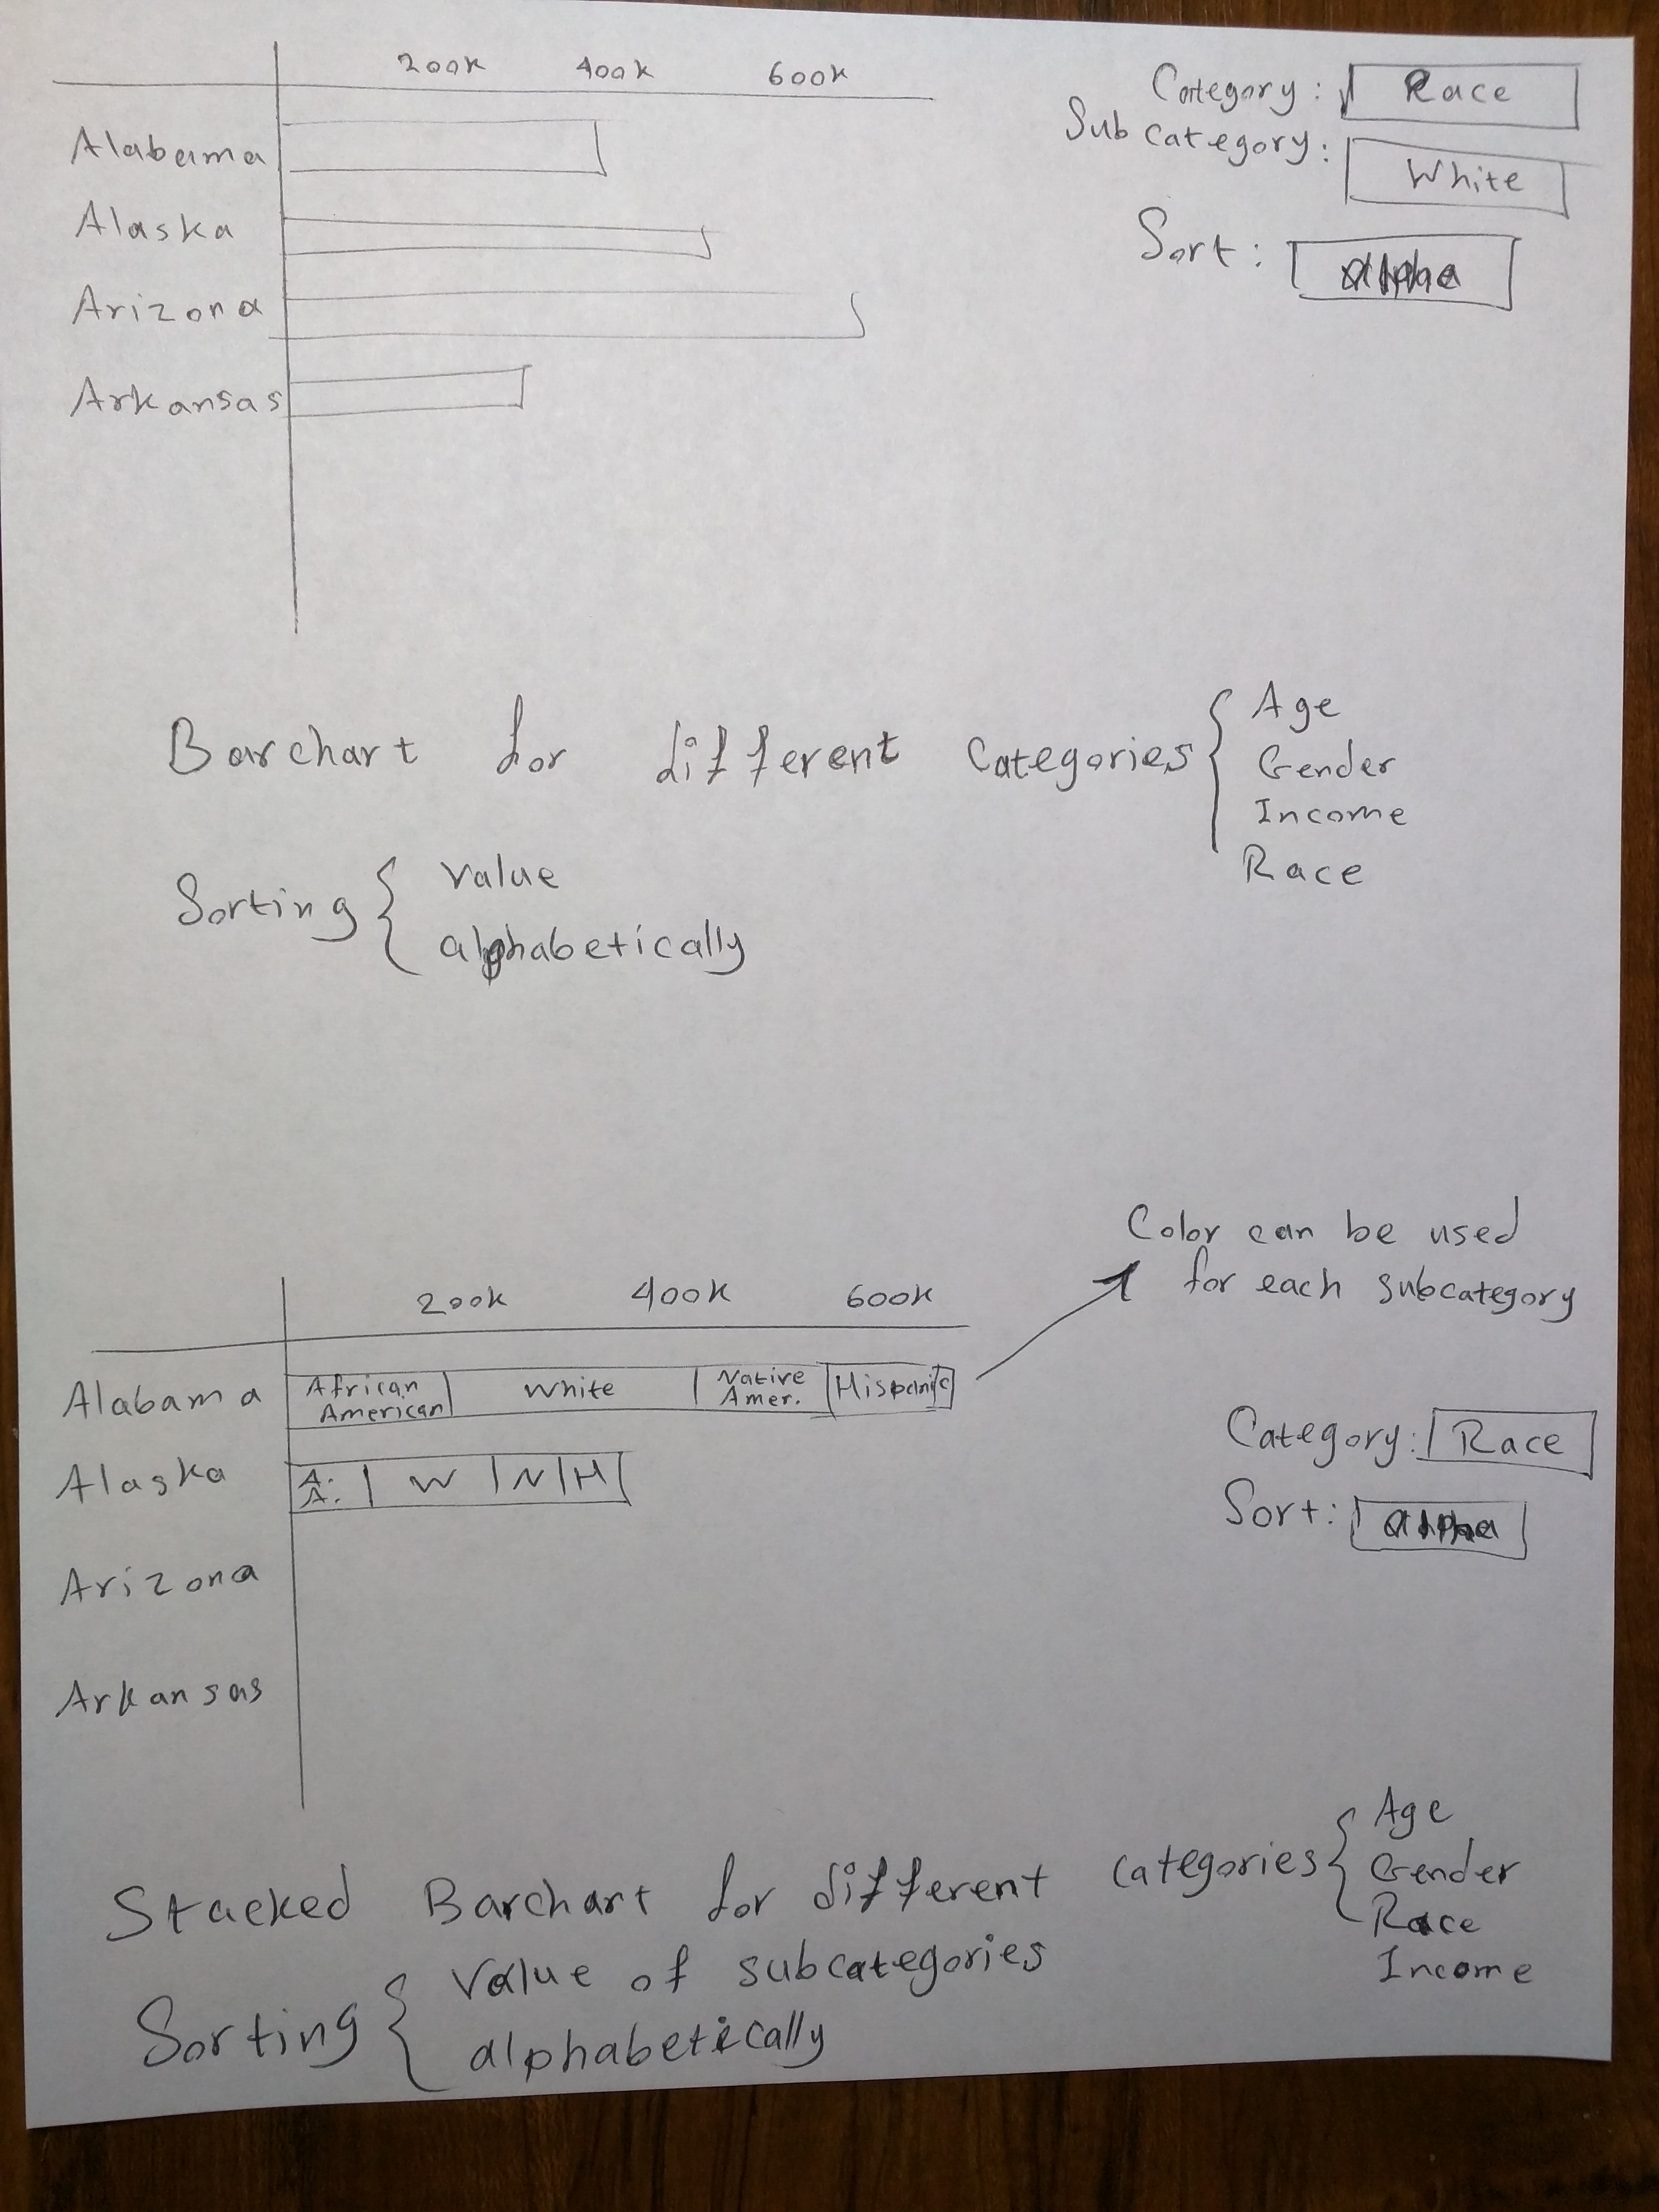 200K 400K 600K
Category: Race
Subcategory: White
Sort: alpha
Alabama
Alaska
Arizona
Arkansas
Barchart for different categories { Age
Gender
Income
Race
Sorting { value
alphabetically
Color can be used
for each subcategory
200K 400K 600K
Alabama African American White Native Amer. Hispanic
Alaska A. A. W N H
Arizona
Arkansas
Category: Race
Sort: alpha
Stacked Barchart for different categories { Age
Gender
Race
Income
Sorting { Value of subcategories
alphabetically